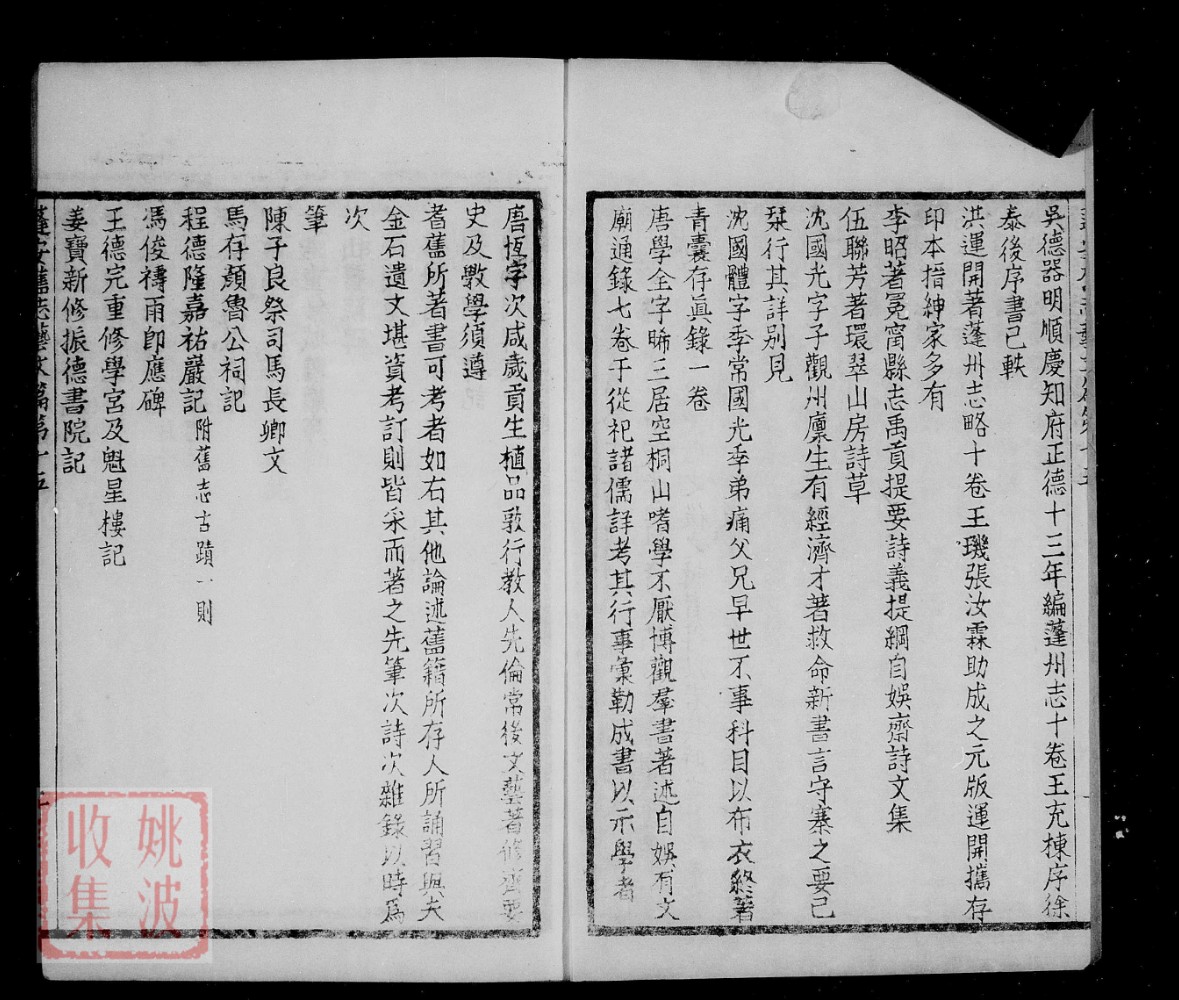 吳德器明順慶知府正德十三年編蓬州志十卷王充棟序徐
泰後序書已軼
洪運開著蓬州志略十卷王璣張汝霖助成之元版運開攜存
印本搢紳家多有
李昭著冕甯縣志禹貢提要詩義提綱自娛齋詩文集
伍聯芳著環翠山房詩草
沈國光字子觀州廩生有經濟才著救命新書言守寨之要已
栞行其詳别見
沈國體字季常國光季弟痛父兄早世不事科目以布衣終著
青囊存眞錄一卷
唐學全字晞三居空桐山嗜學不厭博觀羣書著述自娛有文
廟通錄七卷于從祀諸儒詳考其行事彙勒成書以示學者
唐恆字次咸歲貢生植品敦行教人先倫常後文藝著修齊要
史及斅學須遵
耆舊所著書可考者如右其他論述舊籍所存人所誦習與夫
金石遺文堪資考訂則皆采而著之先筆次詩次雜錄以時爲
次
筆
陳子良祭司馬長卿文
馬存顏魯公祠記
程德隆嘉祐巖記附舊志古蹟一則
馮俊禱雨卽應碑
王德完重修學宮及魁星樓記
姜寶新修振德書院記
蓬安舊志藝文篇第十五
姚波
收集